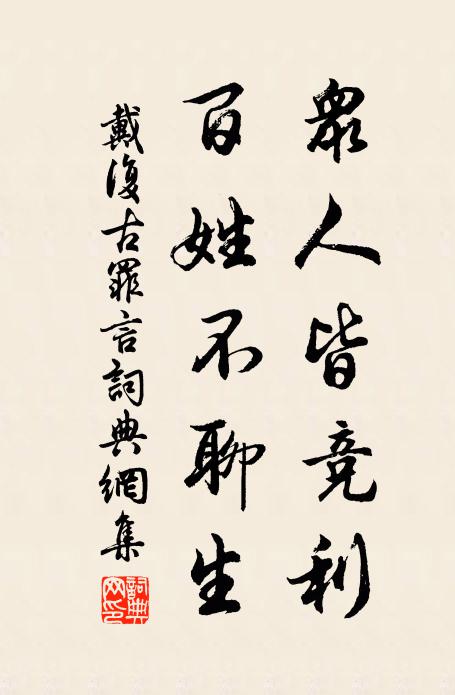 衆人皆竞利
百姓不聊生
戴復古罪言詞典網集
詞典网印